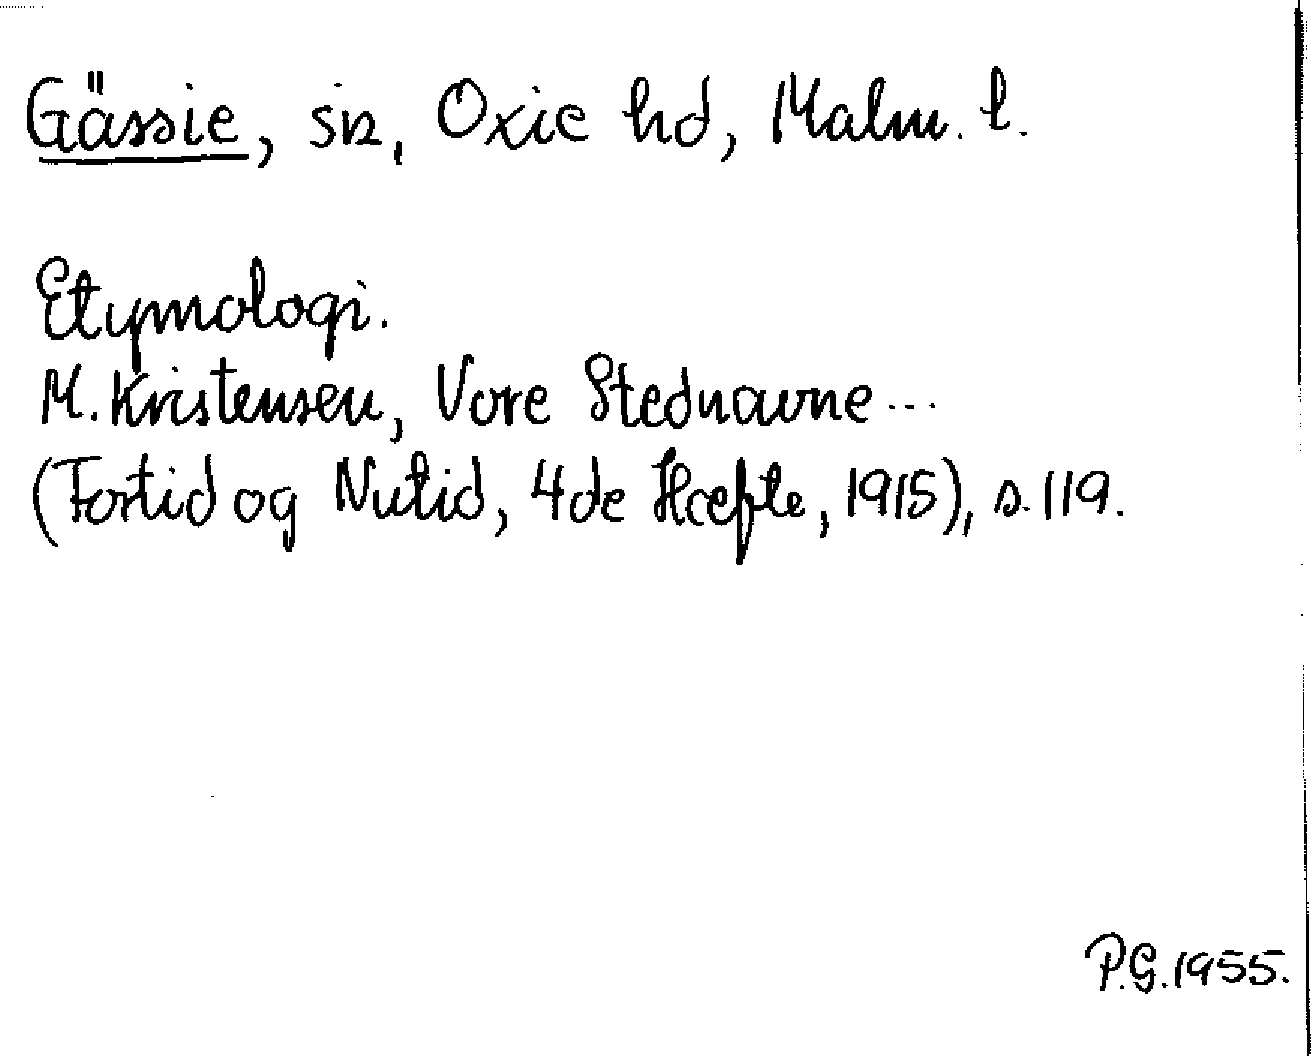 Gässie, sn, Oxie hd, Malm. l.
Etymologi.
M. Kristensen, Vore Stednavne...
(Fortid og Nutid, 4de Hæfte, 1915), s. 119.
P.G. 1955.